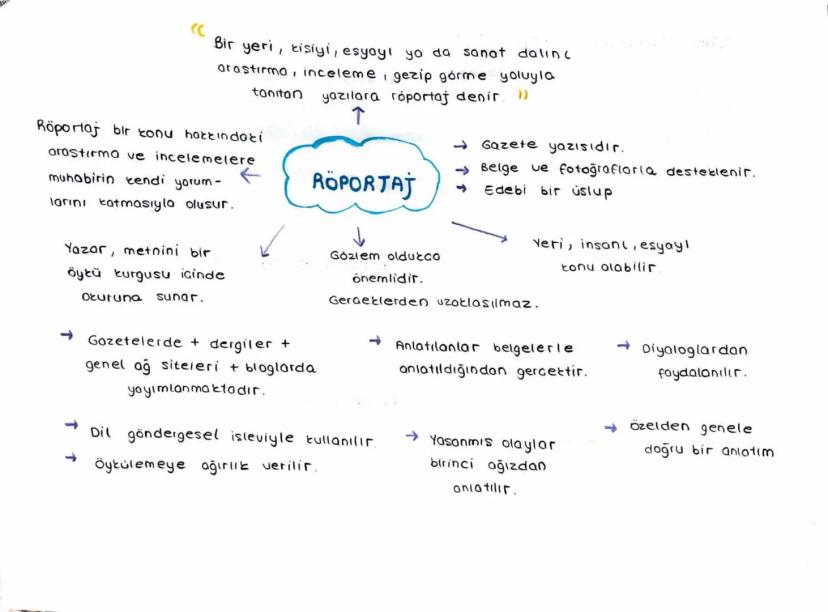 " Bir yeri, kişiyi, eşyayı ya da sanat dalını
araştırma, inceleme, gezip görme yoluyla
tanıtan yazılara röportaj denir. "
Röportaj bir konu hakkındaki
araştırma ve incelemelere
muhabirin kendi yorum-
larını katmasıyla oluşur.
RÖPORTAJ
→ Gazete yazısıdır.
→ Belge ve fotoğraflarla desteklenir.
→ Edebi bir üslup
Yazar, metnini bir
öykü kurgusu içinde
okuruna sunar.
Gözlem oldukça
önemlidir.
Gerçeklerden uzaklaşılmaz.
Yeri, insanı, eşyayı
konu alabilir.
→ Gazetelerde + dergiler +
genel ağ siteleri + bloglarda
yayımlanmaktadır.
→ Anlatılanlar belgelerle
anlatıldığından gerçektir.
→ Diyaloglardan
faydalanılır.
→ Dil göndergesel işleviyle kullanılır.
→ Öykülemeye ağırlık verilir.
→ Yaşanmış olaylar
birinci ağızdan
anlatılır.
→ Özelden genele
doğru bir anlatım